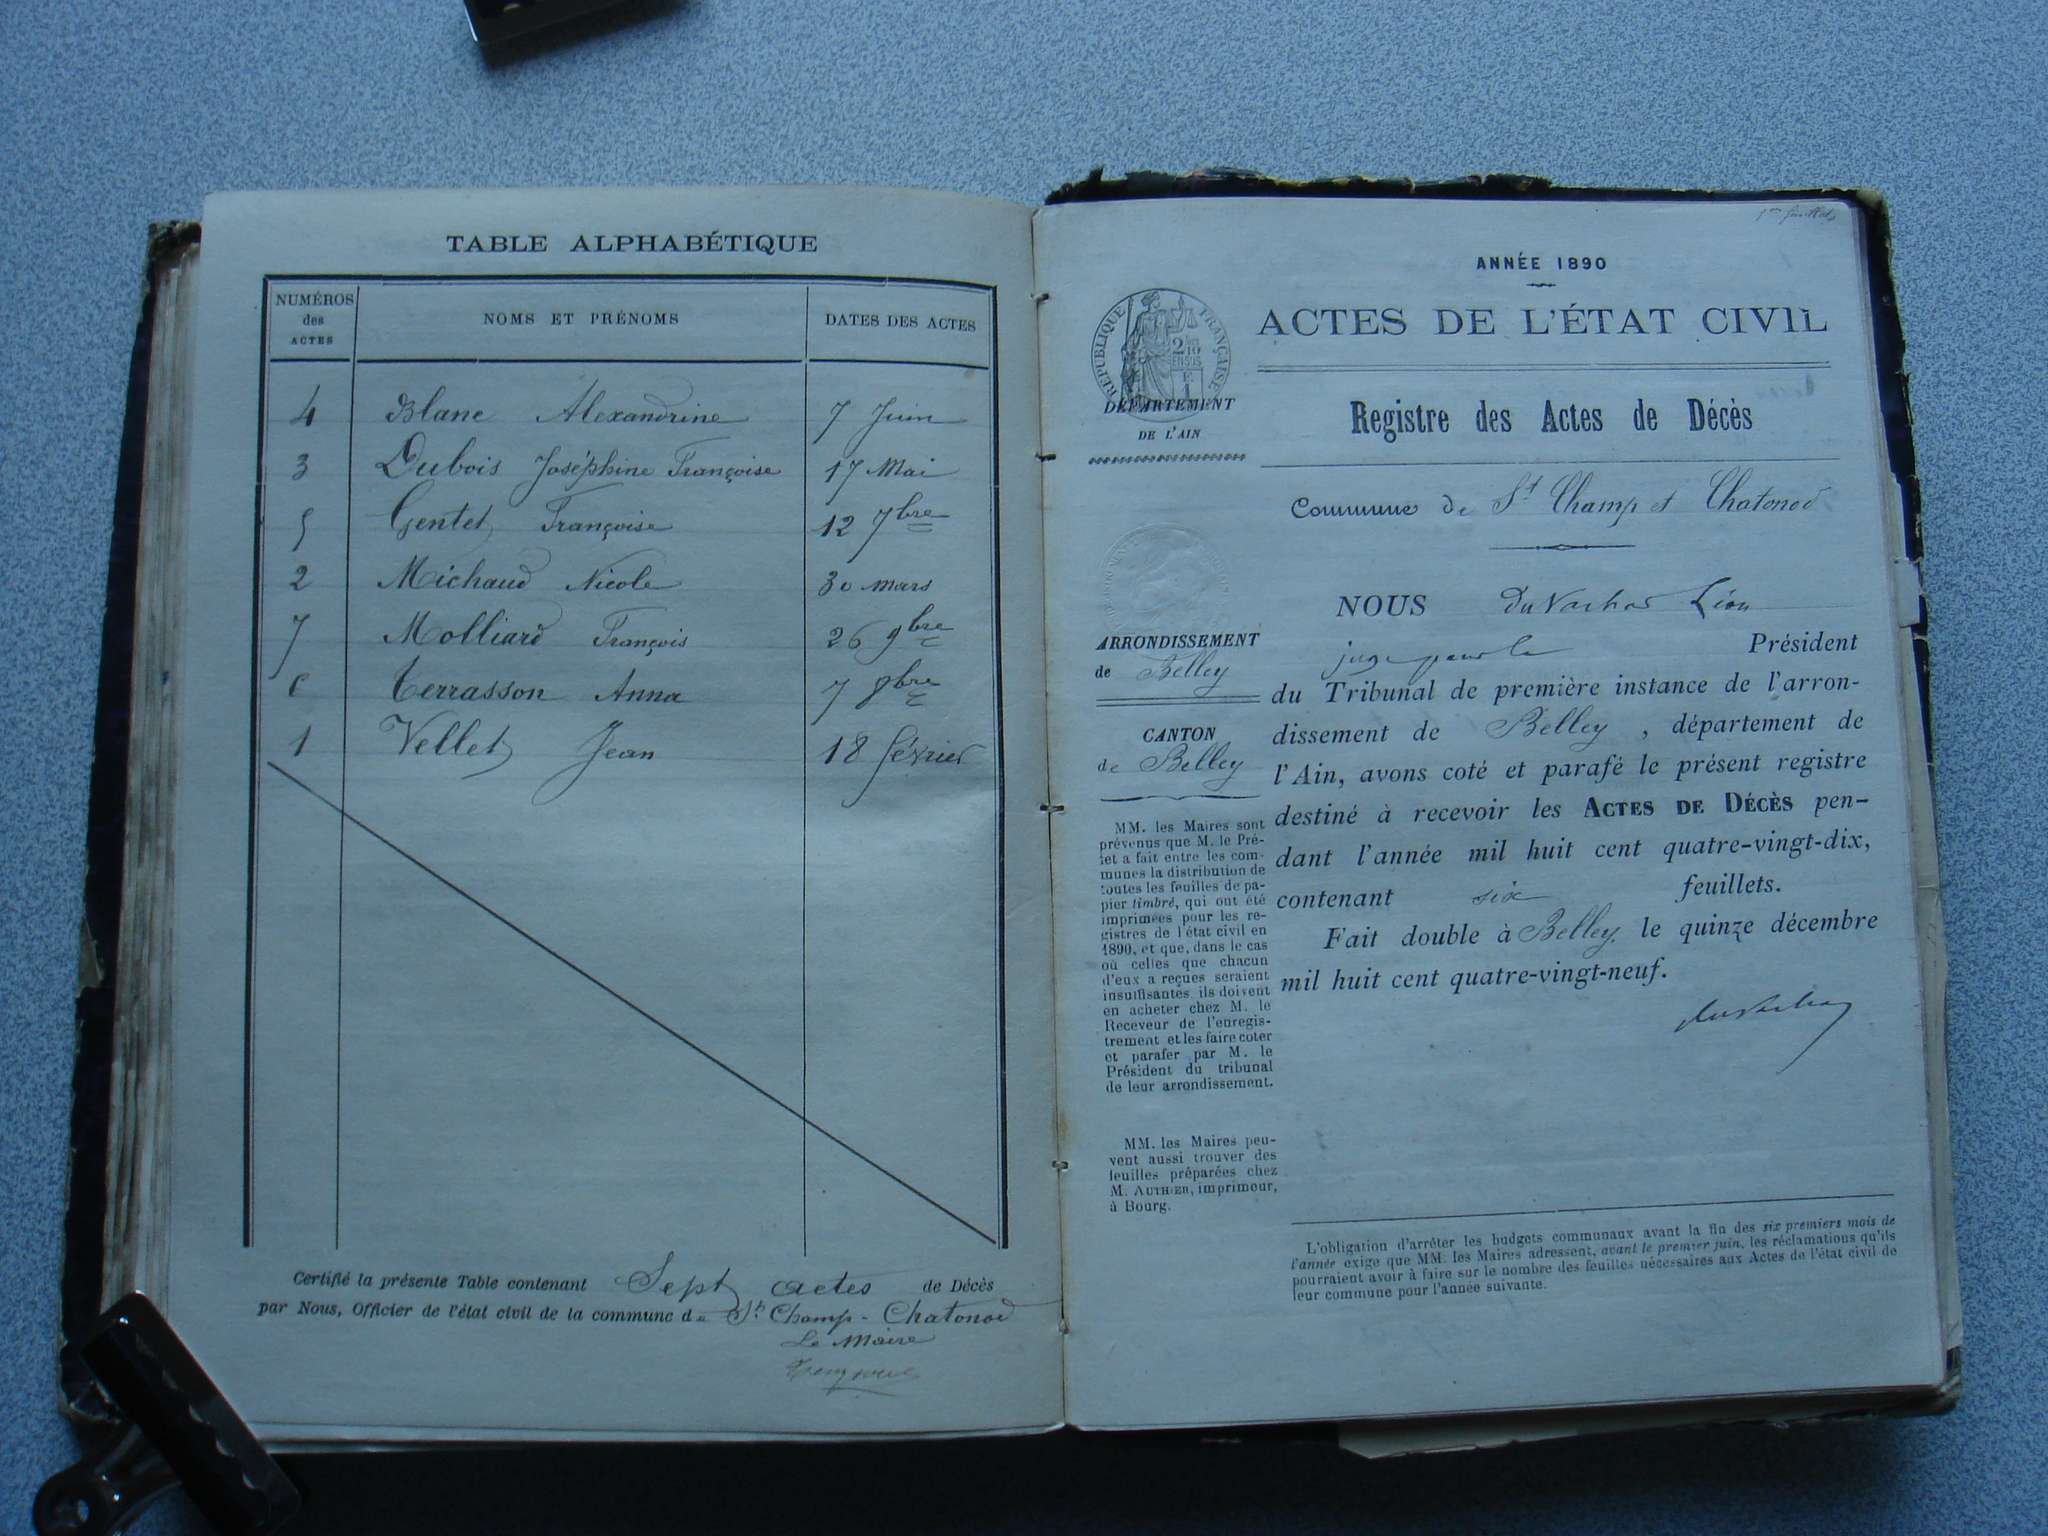 TABLE ALPHABÉTIQUE
NUMÉROS des ACTES NOMS ET PRÉNOMS DATES DES ACTES
4 Blanc Alexandrine 7 Juin
3 Dubois Joséphine Françoise 17 Mai
5 Gentet Françoise 12 7bre
2 Michaud Nicole 30 mars
7 Molliard François 26 9bre
6 Terrasson Anna 7 8bre
1 Vellet Jean 18 février
Certifié la présente Table contenant Sept actes de Décès
par Nous, Officier de l'état civil de la commune de St Champ-Chatonod
Le Maire
1er feuillet
ANNÉE 1890
ACTES DE L'ÉTAT CIVIL
RÉPUBLIQUE FRANÇAISE
2/10 EN SUS
DÉPARTEMENT
DE L'AIN
Registre des Actes de Décès
Commune de St Champ et Chatonod
ARRONDISSEMENT
de Belley
CANTON
de Belley
MM. les Maires sont
prévenus que M. le Pré-
fet a fait entre les com-
munes la distribution de
toutes les feuilles de pa-
pier timbré, qui ont été
imprimées pour les re-
gistres de l'état civil en
1890, et que, dans le cas
où celles que chacun
d'eux a reçues seraient
insuffisantes, ils doivent
en acheter chez M. le
Receveur de l'enregis-
trement et les faire coter
et parafer par M. le
Président du tribunal
de leur arrondissement.
MM. les Maires peu-
vent aussi trouver des
feuilles préparées chez
M. AUTHIER, imprimeur,
à Bourg.
NOUS Léon
juge pour le Président
du Tribunal de première instance de l'arron-
dissement de Belley, département de
l'Ain, avons coté et parafé le présent registre
destiné à recevoir les ACTES DE DÉCÈS pen-
dant l'année mil huit cent quatre-vingt-dix,
contenant six feuillets.
Fait double à Belley, le quinze décembre
mil huit cent quatre-vingt-neuf.
L'obligation d'arrêter les budgets communaux avant la fin des six premiers mois de
l'année exige que MM. les Maires adressent, avant le premier juin, les réclamations qu'ils
pourraient avoir à faire sur le nombre des feuilles nécessaires aux Actes de l'état civil de
leur commune pour l'année suivante.